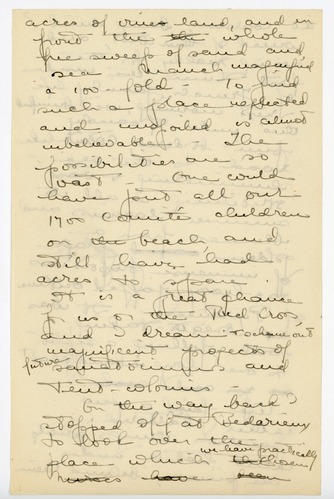 acres of vine land, and in
front the whole
fine sweep of sand and
sea - Manch magnified
a 100 fold - To find
such a place neglected
and unspoiled is almost
unbelievable. The
possibilities are so
vast. One could
have put all our
1700 Comité children
on beach and
still have had
acres to spare.
It is a great chance
for us or the Red Cross
and I dream & scheme out
magnificent projects of
future sanatoriums and
tent-colonies -
On the way back I
stopped off at Bedarieux
to look over the
place which we have practically chosen